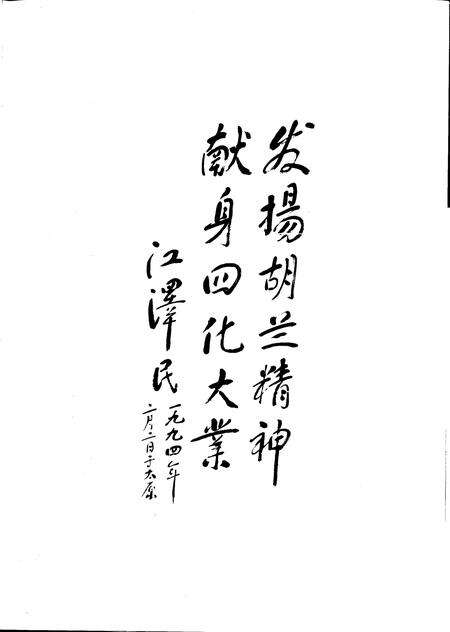 发揚胡兰精神
献身四化大業
江澤民
一九九四年
二月二日于太原